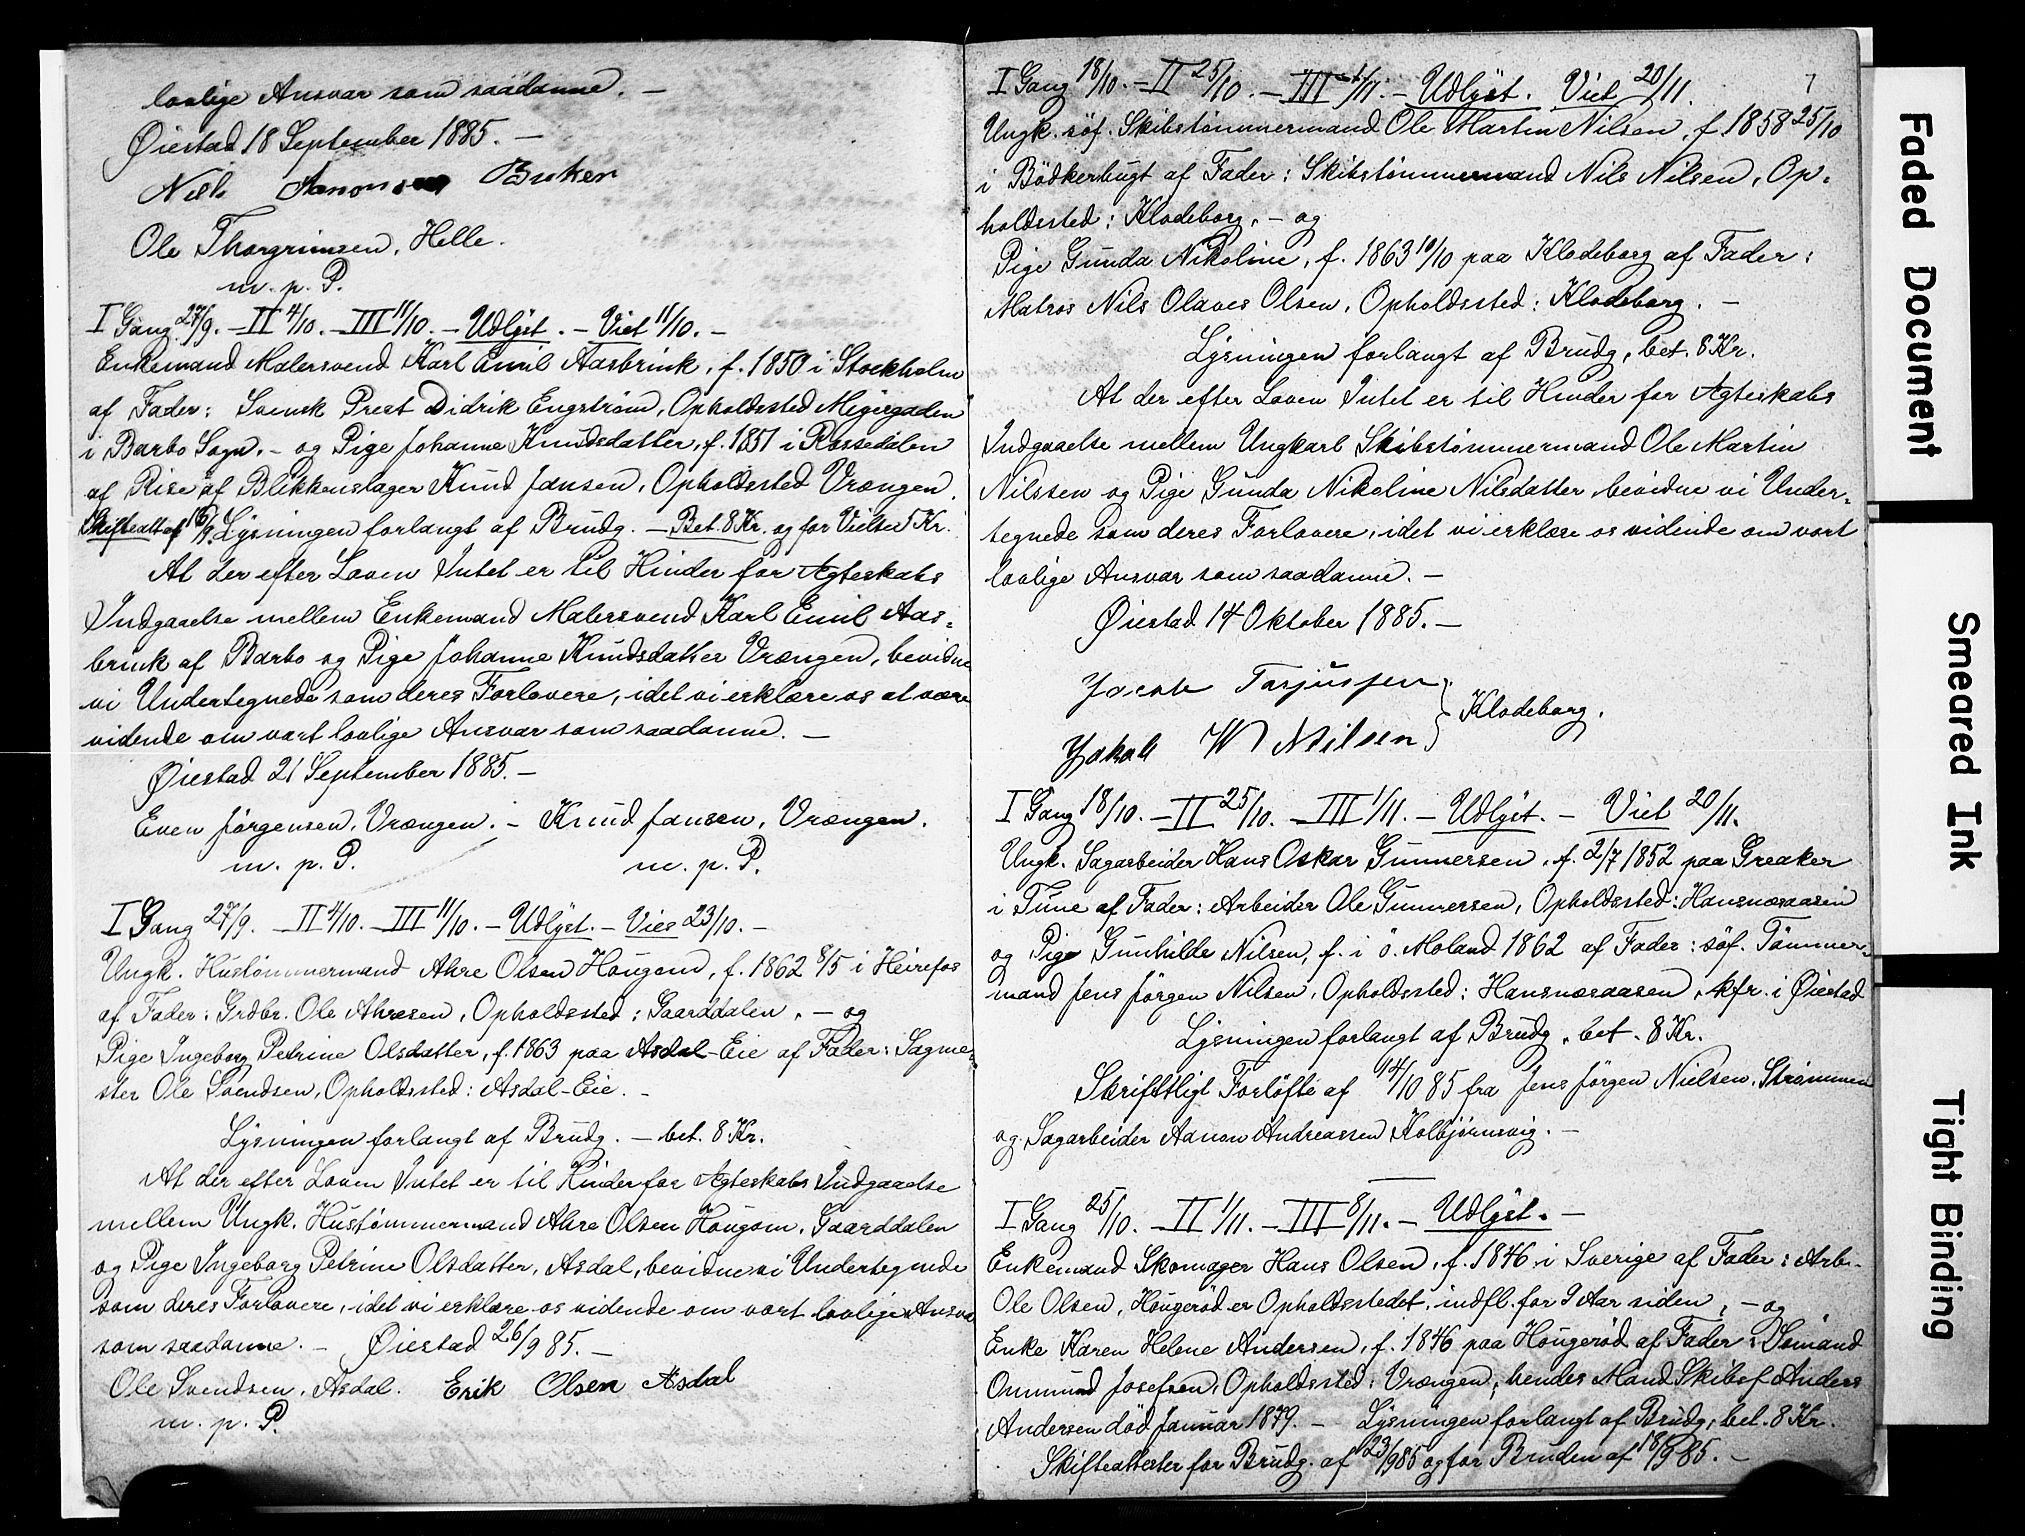 lovlige Ansvar som saadanne. –
Øiestad 18 September 1885. –
Niels Buker
Ole Thorgrimsen, Helle.
m. p. P.
I Gang 27/9. – II 4/10. – III 11/10. – Udlyst. – Viet 11/10. –
Enkemand Malersvend Karl Emil Aasbrink, f. 1850 i Stockholm
af Fader: Svensk Prest Didrik Engström, Opholdssted Megiergaden
i Barbo Sogn. – og Pige Johanne Knudsdatter, f. 1851 i Rossedalen
af Rise af Blikkenslager Knud Jansen, Opholdssted Vrængen.
Skifteatt af 15/9. Lysningen forlangt af Brudg. – Bet. 8 Kr. og for Vielse 5 Kr.
At der efter Loven Intet er til Hinder for Ægteskabs
Indgaaelse mellem Enkemand Malersvend Karl Emil Aas-
brink af Barbo og Pige Johanne Knudsdatter Vrængen, bevidne
vi Undertegnede som deres Forlovere, idet vi erklære os at være
vidende om vort lovlige Ansvar som saadanne. –
Øiestad 21 September 1885. –
Even Jørgensen, Vrængen. – Knud Jansen, Vrængen.
m. p. P. m. p. P.
I Gang 27/9. – II 4/10. – III 11/10. – Udlyst. – Vies 23/10. –
Ungk. Hustømmermand Ahre Olsen Hougom, f. 1862 8/5 i Heirefos
af Fader: Grdbr. Ole Ahresen, Opholdssted: Gaarddalen. – og
Pige Ingeborg Petrine Olsdatter, f. 1863 paa Asdal-Eie af Fader: Sagme-
ster Ole Svendsen, Opholdssted: Asdal-Eie. –
Lysningen forlangt af Brudg. – bet. 8 Kr.
At der efter Loven Intet er til Hinder for Ægteskabs Indgaaelse
mellem Ungk. Hustømmermand Ahre Olsen Hougom, Gaarddalen
og Pige Ingeborg Petrine Olsdatter, Asdal, bevidne vi Undertegnede
som deres Forlovere, idet vi erklære os vidende om vort lovlige Ansva
som saadanne. – Øiestad 26/9 85. –
Ole Svendsen, Asdal. Erik Olsen Asdal
m. p. P.
7
I Gang 18/10. – II 25/10. – III 1/11. – Udlyst. Viet 20/11.
Ungk. søf. Skibstømmermand Ole Martin Nilsen, f. 1858 25/10
i Bødkerbugt af Fader: Skibstømmermand Nils Nilsen, Op-
holdssted: Klodeborg, – og
Pige Gunda Nikoline, f. 1863 10/10 paa Klodeborg af Fader:
Matros Nils Olaves Olsen, Opholdssted: Klodeborg. –
Lysningen forlangt af Brudg, bet. 8 Kr.
At der efter Loven Intet er til Hinder for Ægteskabs
Indgaaelse mellem Ungkarl Skibstømmermand Ole Martin
Nilssen og Pige Gunda Nikoline Nilsdatter bevidne vi Under-
tegnede som deres Forlovere, idet vi erklære os vidende om vort
lovlige Ansvar som saadanne. –
Øiestad 14 Oktober 1885. –
Jacob Tarjussen
Klodeborg.
Jakob W Nilsen
I Gang 18/10. – II 25/10. – III 1/11. – Udlyst. – Viet 20/11.
Ungk. Sagarbeider Hans Oskar Gunnersen, f. 2/7 1852 paa Greaker
i Tune af Fader: Arbeider Ole Gunnersen, Opholdssted: Hansnæsaasen
og Pige Gunhilde Nilsen, f. i ö. Moland 1862 af Fader: søf. Tømmer-
mand Jens Jørgen Nilsen, Opholdssted: Hansnæsaasen, kfr. i Øiestad
Lysningen forlangt af Brudg, bet. 8 Kr.
Skriftligt Forløfte af 14/10 85 fra Jens Jørgen Nielsen, Strømmen
og Sagarbeider Aanon Andreassen Kolbjørnsvig. –
I Gang 25/10. – II 1/11. – III 8/11. – Udlyst. –
Enkemand Skomager Hans Olsen, f. 1846 i Sverige af Fader: Arb.
Ole Olsen, Hougerød er Opholdsstedet, indfl. for 9 Aar siden, – og
Enke Karen Helene Andersen, f. 1846 paa Hougerød af Fader:
Onmund Josefsen, Opholdssted: Vrængen, hendes Mand Skibsf Anders
Andersen död Januar 1879. – Lysningen forlangt af Brudg, bet. 8 Kr.
Skifteattester for Brudg. af 23/9 85 og for Bruden af 18/9 85. –
Faded Document
Smeared Ink
Tight Binding